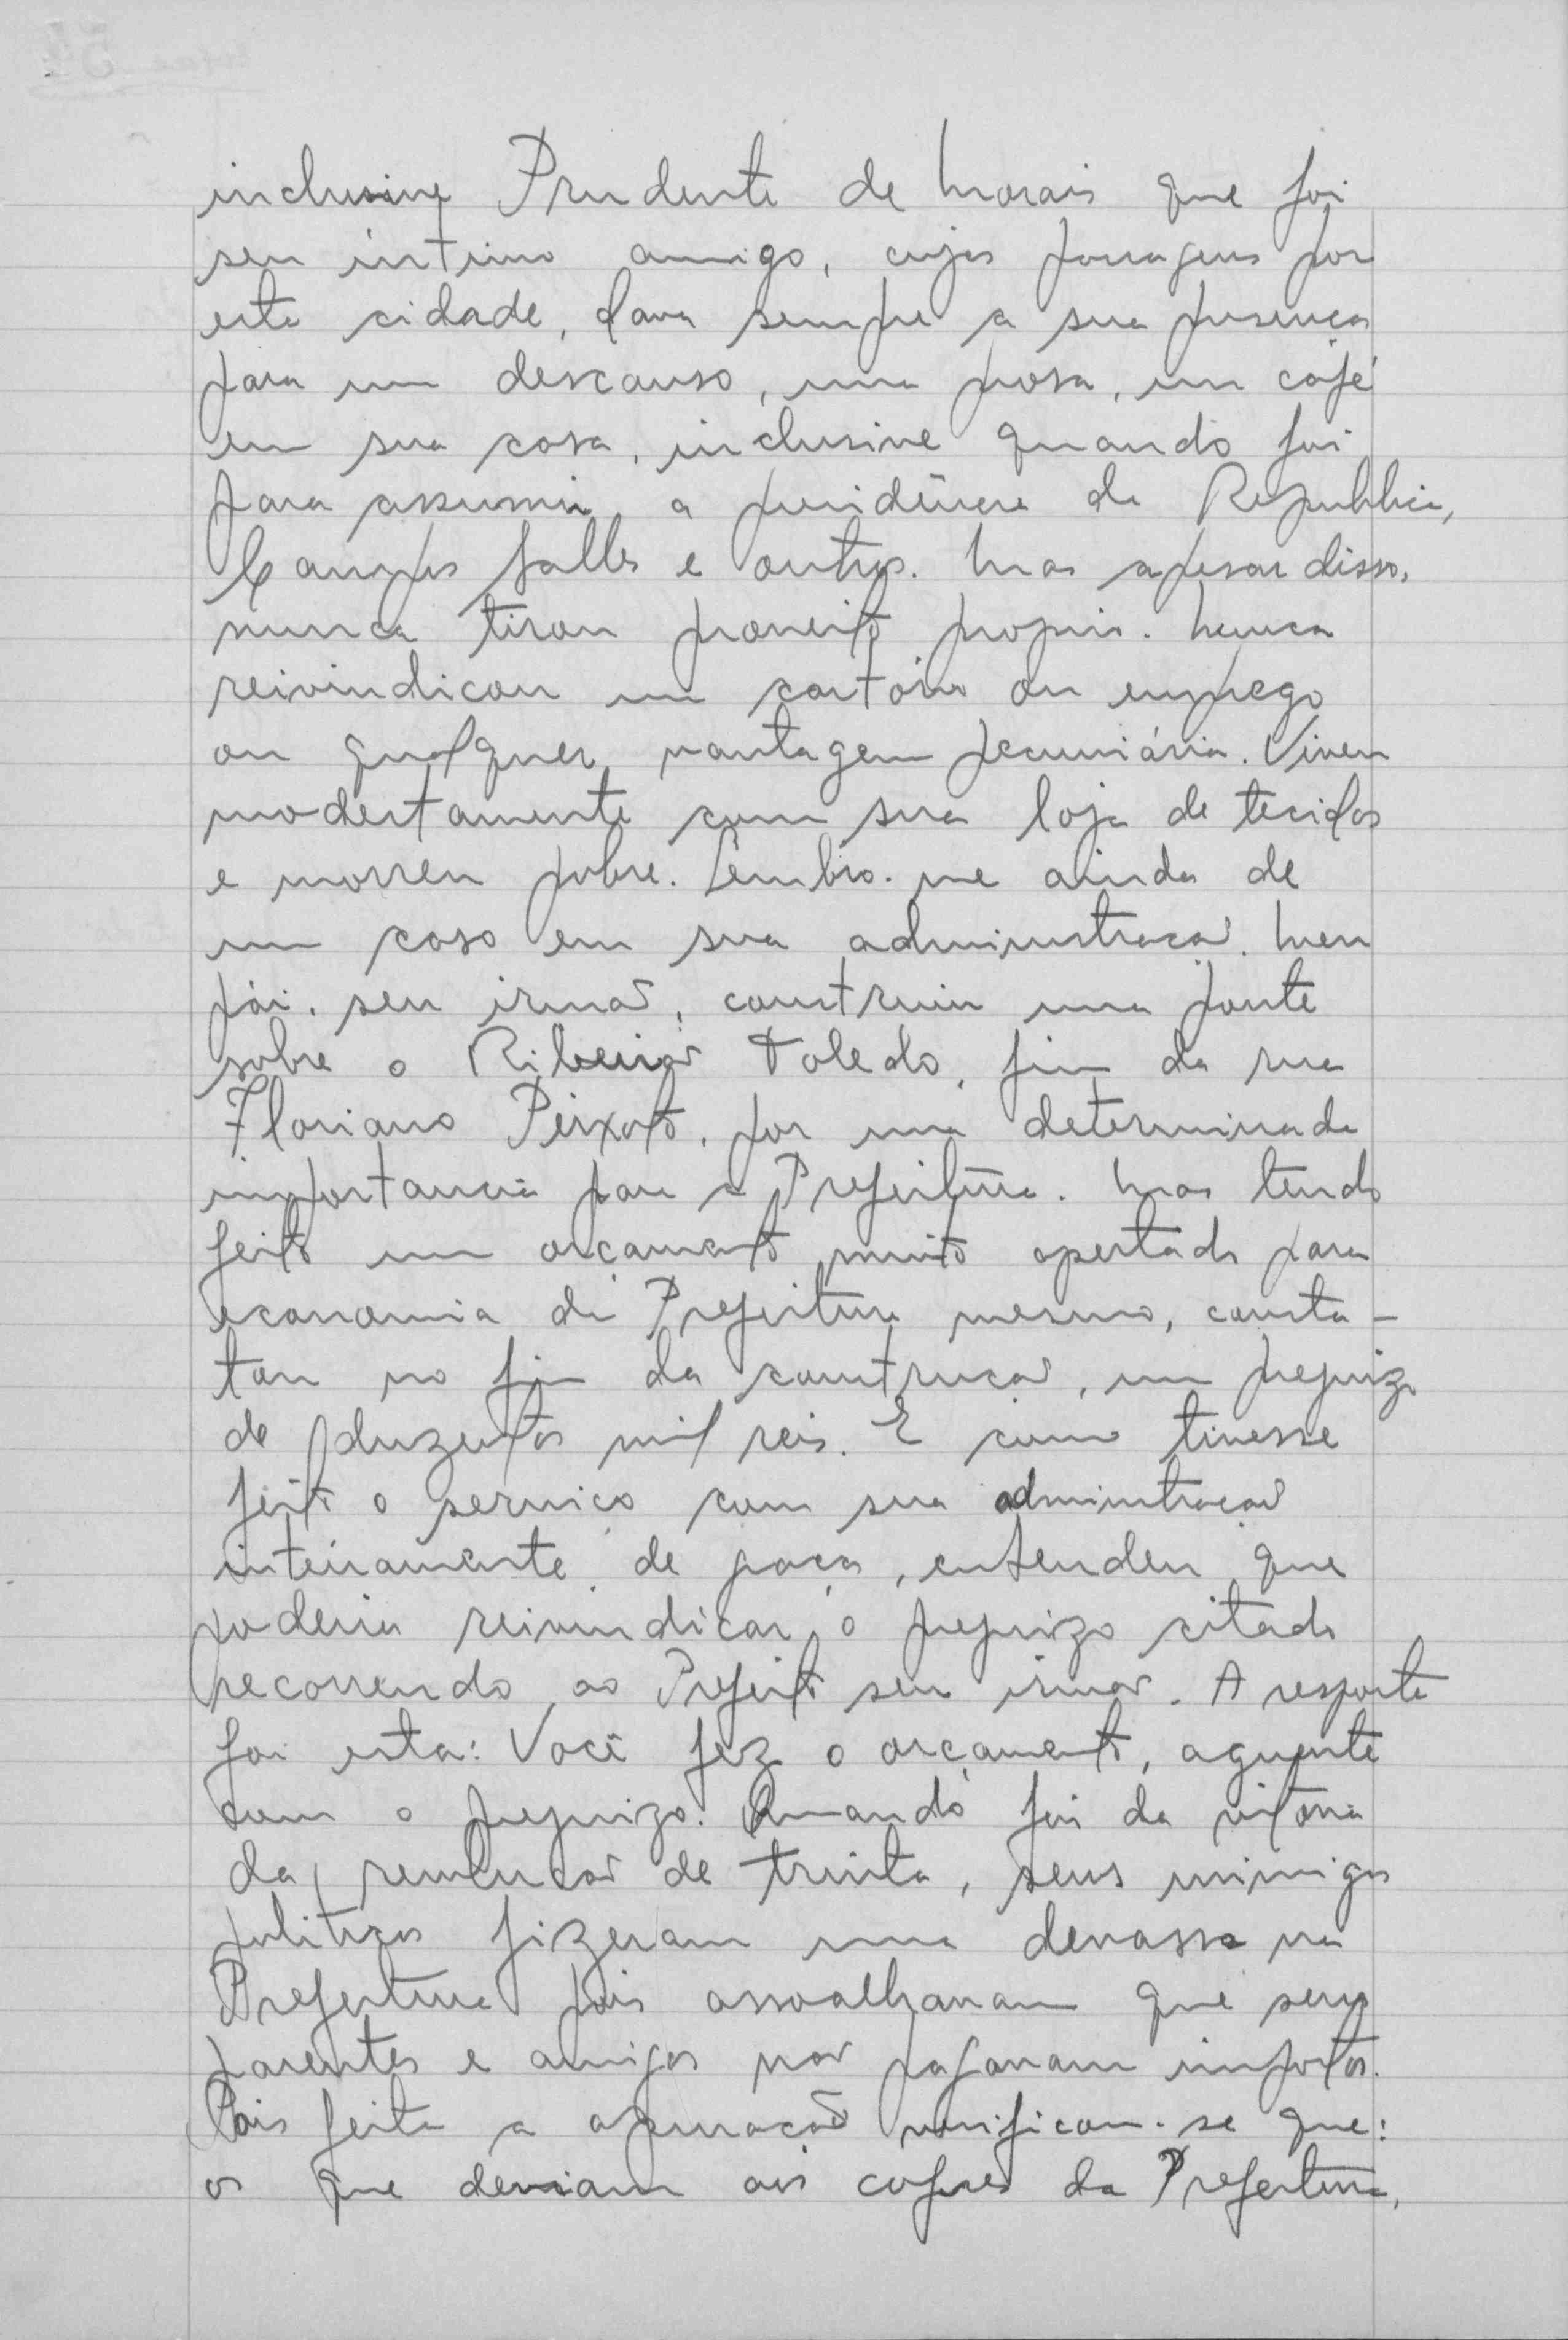 inclusive Prudente de Morais que foi
seu íntimo amigo, cujas passagens por
esta cidade, dava sempre a sua presença
para um descanso, uma prosa, um café
em sua casa, inclusive quando foi
para assumir a presidência da Republica,
Campos Salles e outros. Mas apesar disso,
nunca tirou proveito proprio. Nunca
reivindicou um cartório ou emprego
ou qualquer vantagem pecuniária. Viveu
modestamente com sua loja de tecidos
e morreu pobre. Lembro-me ainda de
um caso em sua administração. Meu
pai, seu irmão, construiu uma ponte
sobre o Ribeirão Toledo, fim da rua
Floriano Peixoto, por uma determinada
importancia para a Prefeitura. Mas tendo
feito um orçamento muito apertado para
economia da Prefeitura mesmo, consta-
tou no fim da construção, um prejuizo
de duzentos mil reis. E como tivesse
feito o serviço com sua administração
inteiramente de graça, entendeu que
poderia reivindicar o prejuizo citado
recorrendo ao Prefeito seu irmão. A resposta
foi esta: Você fez o orçamento, aguente
com o prejuizo. Quando foi da vitória
da revolução de trinta, seus inimigos
politicos fizeram uma devassa na
Prefeitura pois assoalhavam que seus
parentes e amigos não pagavam impostos.
Pois feita a apuração verificou-se que:
os que deviam aos cofres da Prefeitura,